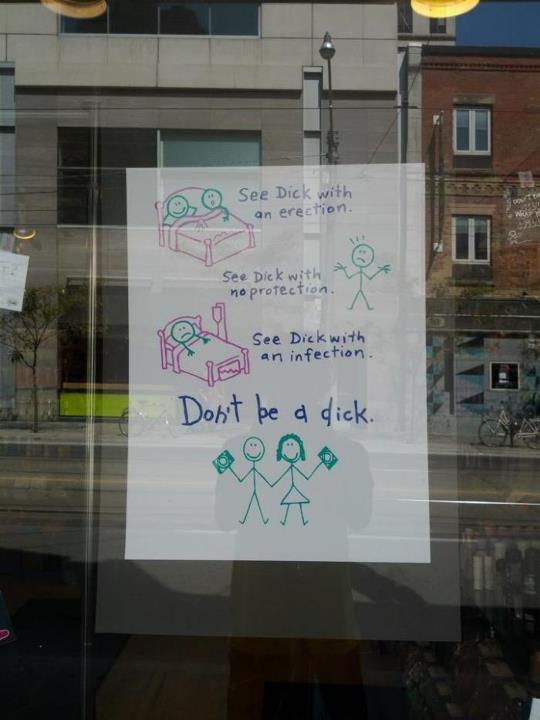 See Dick with
an erection.
See Dick with
no protection.
See Dick with
an infection.
Don't be a dick.